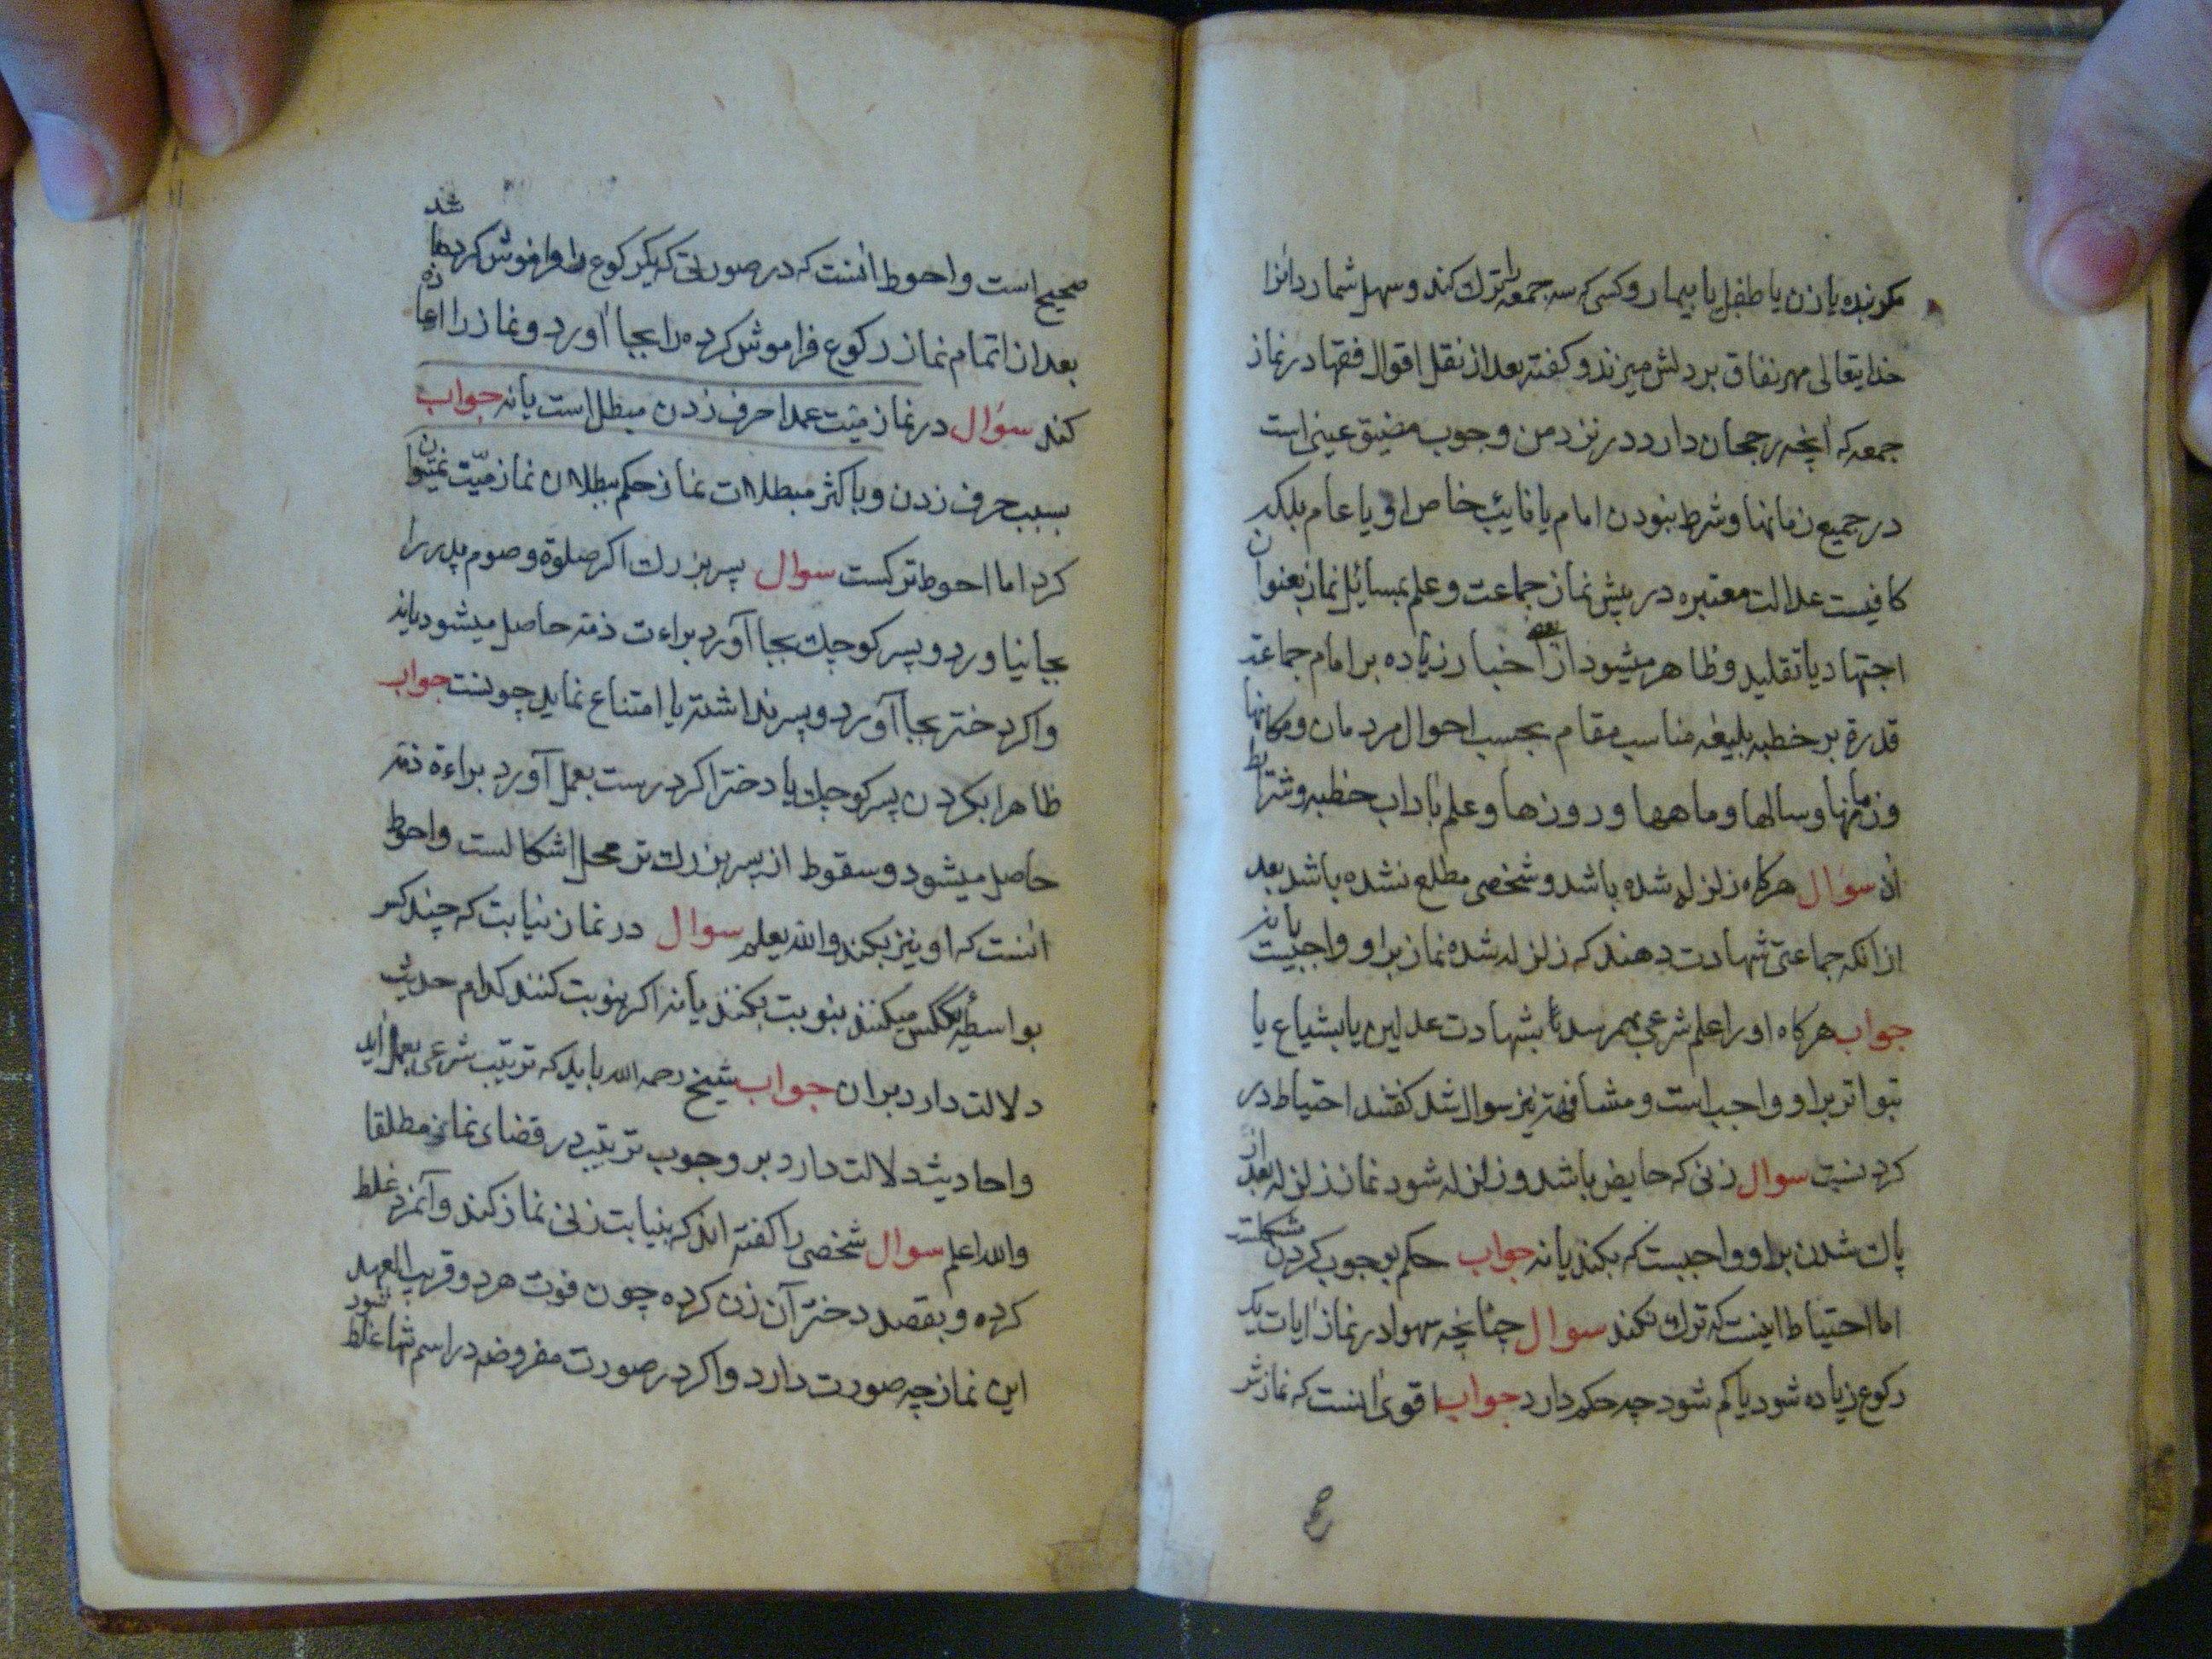 مکر بنده یا زن یا طفل یا بیمار و کسی که سه جمعه را ترک کند و سهل شمارد انرا
خدایتعالی مهر نفاق بر دلش میزند و کفته بعد از نقل اقوال فقها در نماز
جمعه که آنچه رجحان دارد در نزد من وجوب مضیق عینی است
در جمیع زمانها و شرط نبودن امام یا نایب خاص او یا عام بلکه
کافیست عدالت معتبره در پیش نماز جماعت و علم بمسائل نماز بعنوان
اجتهاد یا تقلید و ظاهر میشود از بعض اخبار زیاده بر امام جماعة
قدرة بر خطبه بلیغه مناسب مقام بحسب احوال مردمان و مکانها
و زمانها و سالها و ماهها و روزها و علم بآداب خطبه و شرایط
ان سؤال هرکاه زلزله شده باشد و شخصی مطلع نشده باشد بعد
از انکه جماعتی شهادت دهند که زلزله شده نماز بر او واجبست یا نه
جواب هرکاه او را علم شرعی بهم رسد بشهادت عدلین یا بشیاع یا
بتواتر بر او واجب است و مشافهة نیز سوال شد کفتند احتیاط در
کردنست سوال زنی که حایض باشد و زلزله شود نماز زلزله بعد از
پاک شدن بر او واجبست که بکند یا نه جواب حکم بوجوب کردن مشکلست
اما احتیاط اینست که ترک نکند سوال چنانچه سهوا در نماز ایات یک
رکوع زیاده شود یا کم شود چه حکم دارد جواب اقوی انست که نمازش
صحیح است و احوط انست که در صورتی که یک رکوع را فراموش کرده باشد
بعد از اتمام نماز رکوع فراموش کرده را بجا آورد و نماز را اعاده
کند سؤال در نماز میت عمدا حرف زدن مبطل است یا نه جواب
بسبب حرف زدن و با کثر مبطلات نماز حکم ببطلان نماز میّت نمیتوان
کرد اما احوط ترکست سوال پسر بزرک اکر صلوة و صوم پدر را
بجا نیاورد و پسر کوچک بجا آورد براءت ذمه حاصل میشود یا نه
و اکر دختر بجا آورد و پسر نداشته یا امتناع نماید چونست جواب
ظاهرا بکردن پسر کوچک یا دختر اکر درست بعمل آورد براءة ذمه
حاصل میشود و سقوط از پسر بزرک تر محل اشکالست و احوط
انست که او نیز بکند و الله یعلم سوال در نماز نیابت که چند کس
بواسطه یککس میکنند بنوبت بکنند یا نه اکر بنوبت کنند کدام حدیث
دلالت دارد بران جواب شیخ رحمه الله باید که ترتیب شرعی بعمل آید
و احادیث دلالت دارد بر وجوب ترتیب در قضای نماز مطلقا
و الله اعلم سوال شخصی را کفته اند که بنیابت زنی نماز کند و آنمرد غلط
کرده و بقصد دختر آن زن کرده چون فوت هر دو قریب العهد
این نماز چه صورت دارد و اکر در صورت مفروضه در اسم تنها غلط شود